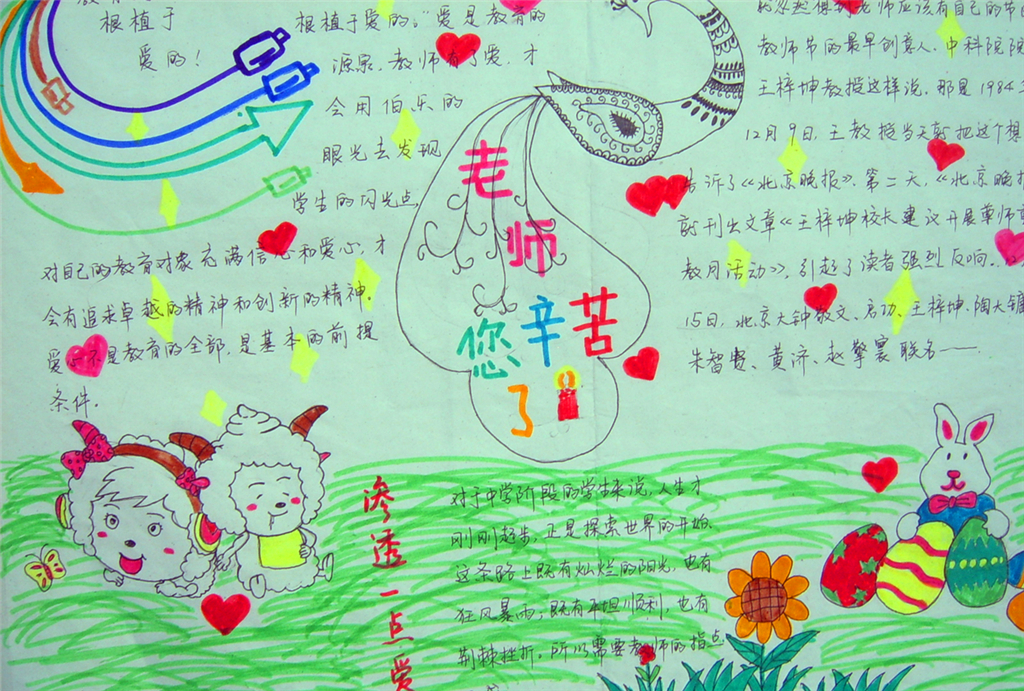 根植于
爱的！
根植于爱的。"爱是教育的
源泉，教师有了爱，才
会用伯乐的
眼光去发现
学生的闪光点，
对自己的教育对象充满信心和爱心，才
会有追求卓越的精神和创新的精神。
爱心不是教育的全部，是基本的前提
条件．
老师
您辛苦
了
教师节的最早创意人、中科院院
王梓坤教授这样说。那是1984年
12月9日，王教授当天就把这个想
告诉了《北京晚报》、第二天，《北京晚报
就刊出文章《王梓坤校长建议开展尊师重
教月活动》，引起了读者强烈反响．．．
15日，北京大钟敬文、启功、王梓坤、陶大镛
朱智贤、黄济、赵擎寰联名——
渗透一点爱
对于中学阶段的学生来说，人生才
刚刚起步，正是探索世界的开始、
这条路上既有灿烂的阳光，也有
狂风暴雨；既有平坦顺利，也有
荆棘挫折。所以需要老师的指点